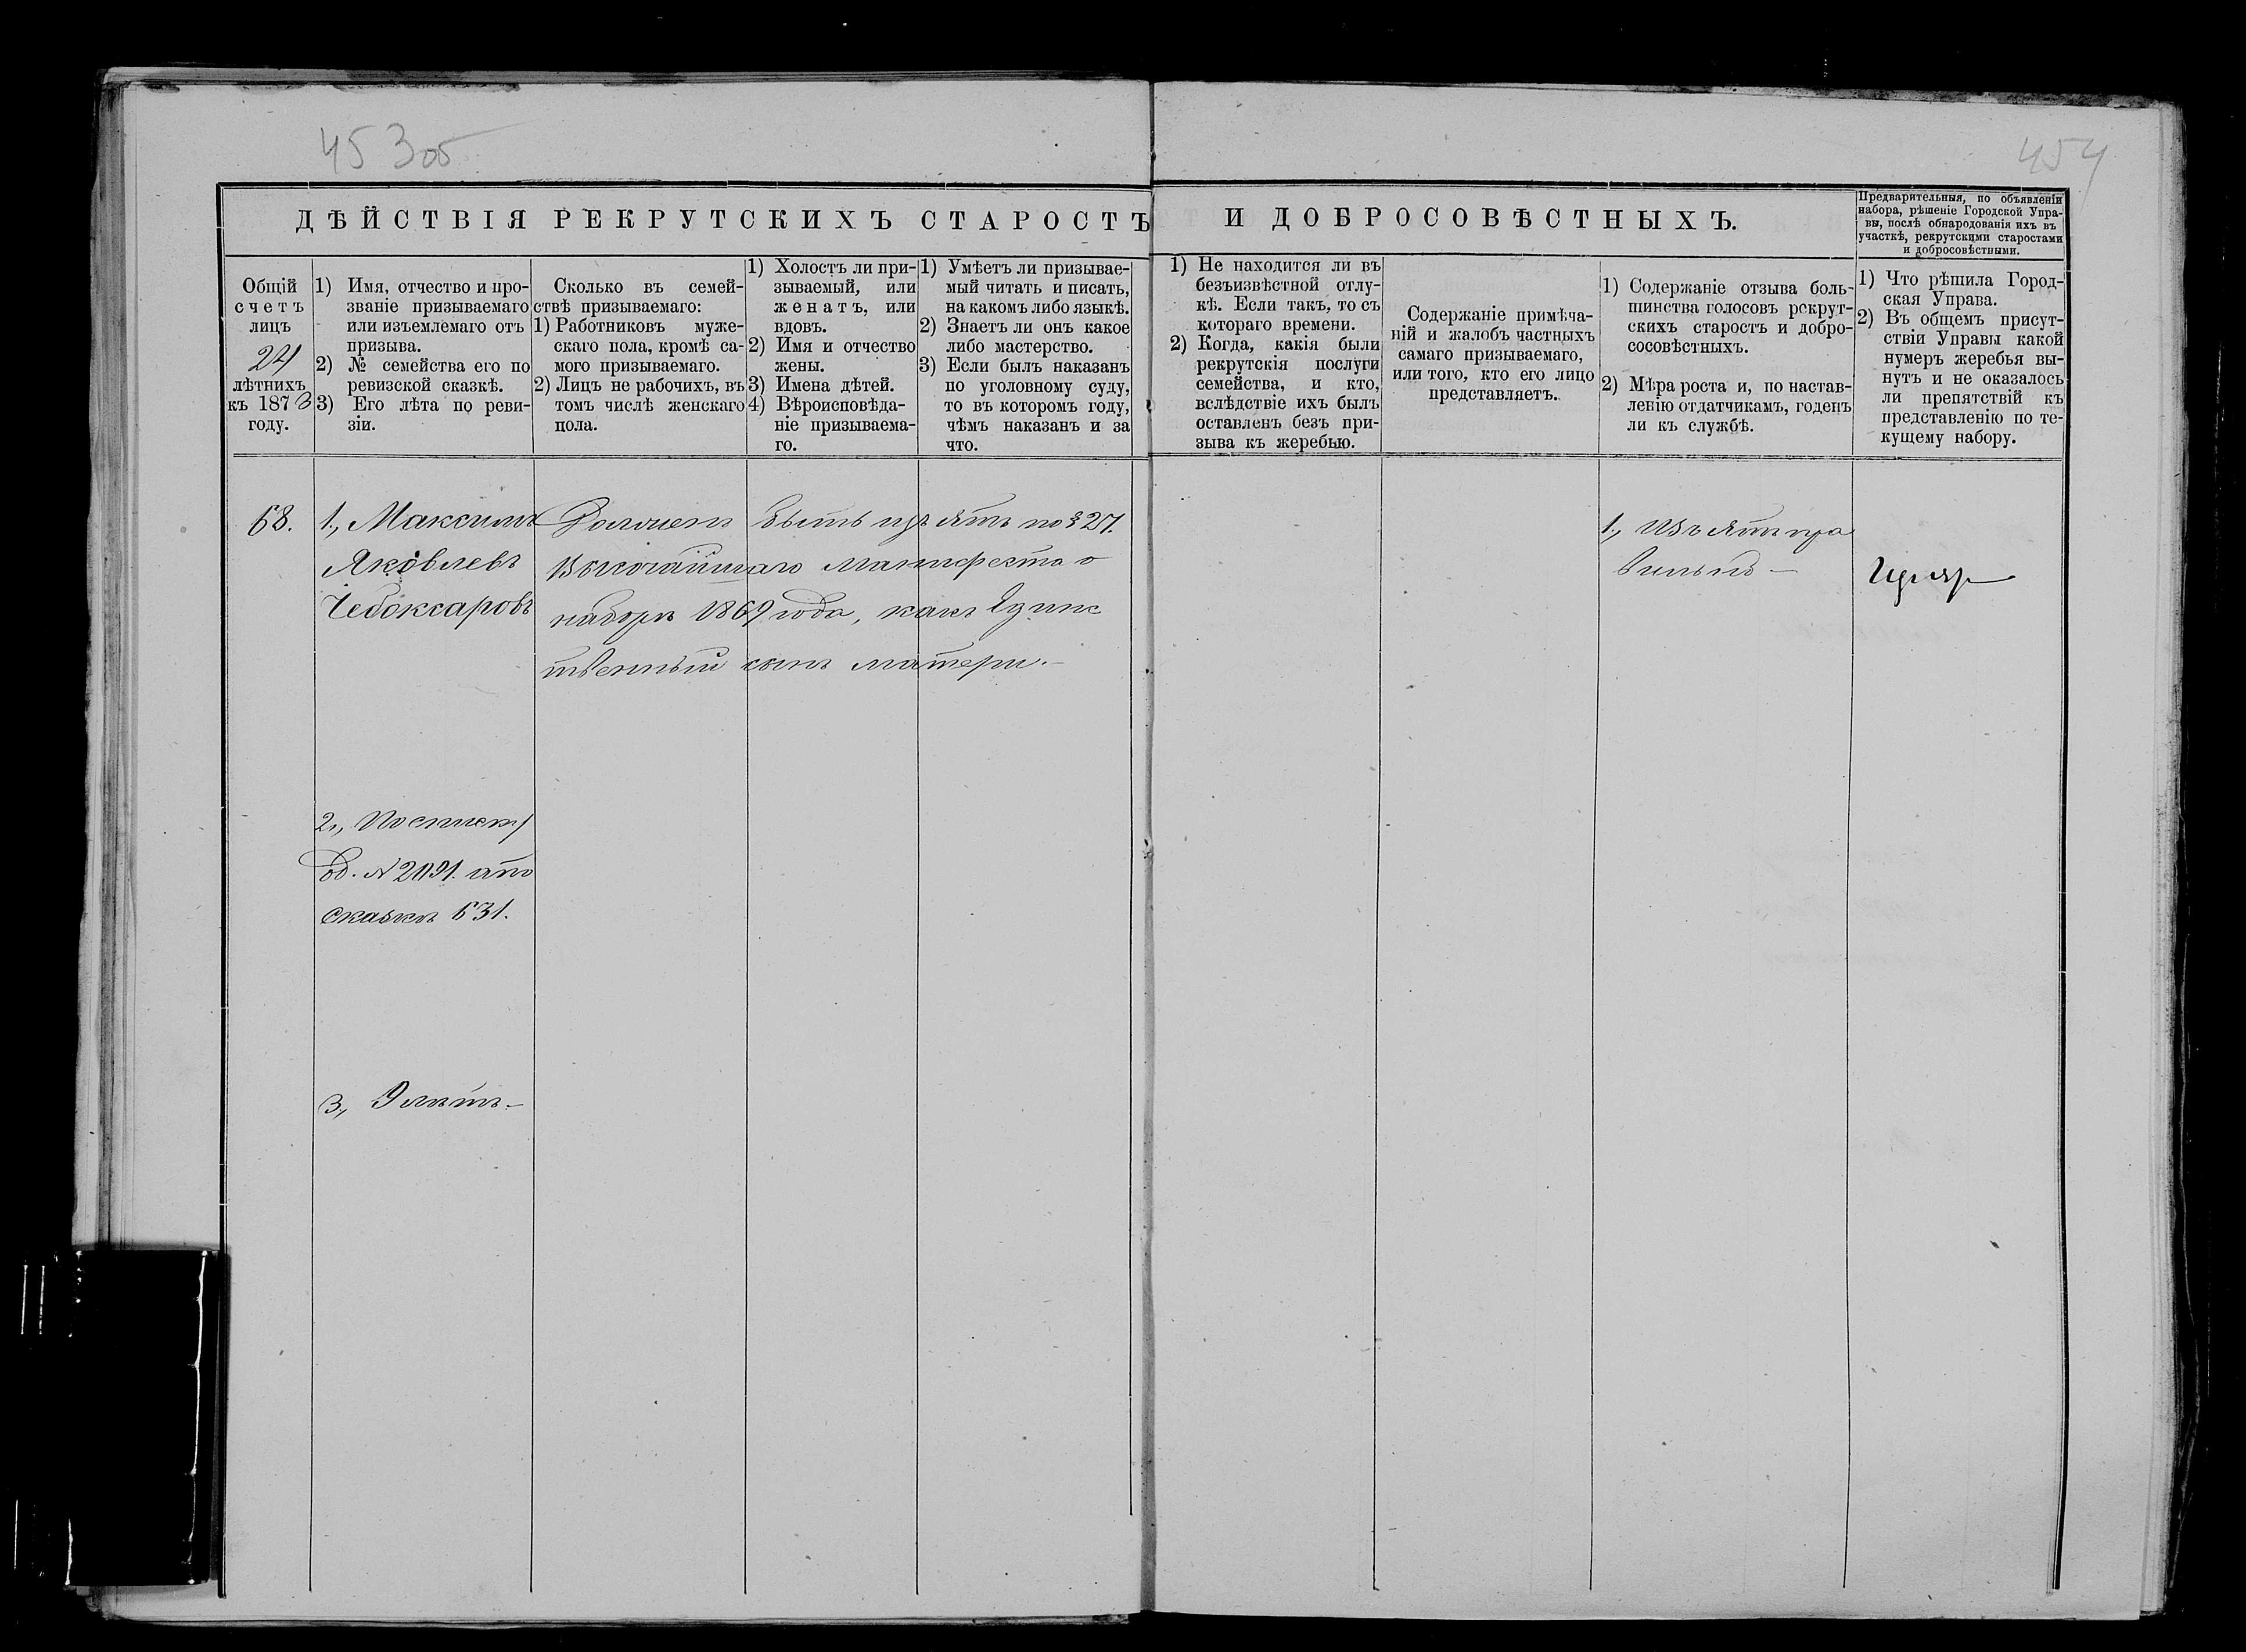 453об
454
ДѢЙСТВІЯ РЕКРУТСКИХЪ СТАРОСТЪ И ДОБРОСОВѢСТНЫХЪ.
Предварительныя, по объявленіи
набора, рѣшеніе Городской Упра-
вы, послѣ обнародованія ихъ въ
участкѣ, рекрутскими старостами
и добросовѣстными.
Общій
счетъ
лицъ
24
лѣтнихъ
къ 1873
году.
1) Имя, отчество и про-
званіе призываемаго
или изъемлемаго отъ
призыва.
2) № семейства его по
ревизской сказкѣ.
3) Его лѣта по реви-
зіи.
Сколько въ семей-
ствѣ призываемаго:
1) Работниковъ муже-
скаго пола, кромѣ са-
мого призываемаго.
2) Лицъ не рабочихъ, въ
томъ числѣ женскаго
пола.
1) Холостъ ли при-
зываемый, или
женатъ, или
вдовъ.
2) Имя и отчество
жены.
3) Имена дѣтей.
4) Вѣроисповѣда-
ніе призываема-
го.
1) Умѣетъ ли призывае-
мый читать и писать,
на какомъ либо языкѣ.
2) Знаетъ ли онъ какое
либо мастерство.
3) Если былъ наказанъ
по уголовному суду,
то въ которомъ году,
чѣмъ наказанъ и за
что.
1) Не находится ли въ
безъизвѣстной отлу-
кѣ. Если такъ, то съ
котораго времени.
2) Когда, какія были
рекрутскія послуги
семейства, и кто,
вслѣдствіе ихъ былъ
оставленъ безъ при-
зыва къ жеребью.
Содержаніе примѣча-
ній и жалобъ частныхъ
самаго призываемаго,
или того, кто его лицо
представляетъ.
1) Содержаніе отзыва боль-
шинства голосовъ рекрут-
скихъ старостъ и добро-
сосовѣстныхъ.
2) Мѣра роста и, по настав-
ленію отдатчикамъ, годенъ
ли къ службѣ.
1) Что рѣшила Город-
ская Управа.
2) Въ общемъ присут-
ствіи Управы какой
нумеръ жеребья вы-
нутъ и не оказалось
ли препятствій къ
представленію по те-
кущему набору.
68.
1., Максимъ
Яковлевъ
Чебоксаровъ
2., По списку
об. № 2091. а по
сказкѣ 631.
3., 9 лѣтъ. —
Долженъ быть изъятъ по § 27.
Высочайшаго манифеста о
наборѣ 1869 года, какъ Единс
твенный сынъ матери. —
1., Изъятъ пра
вильно —